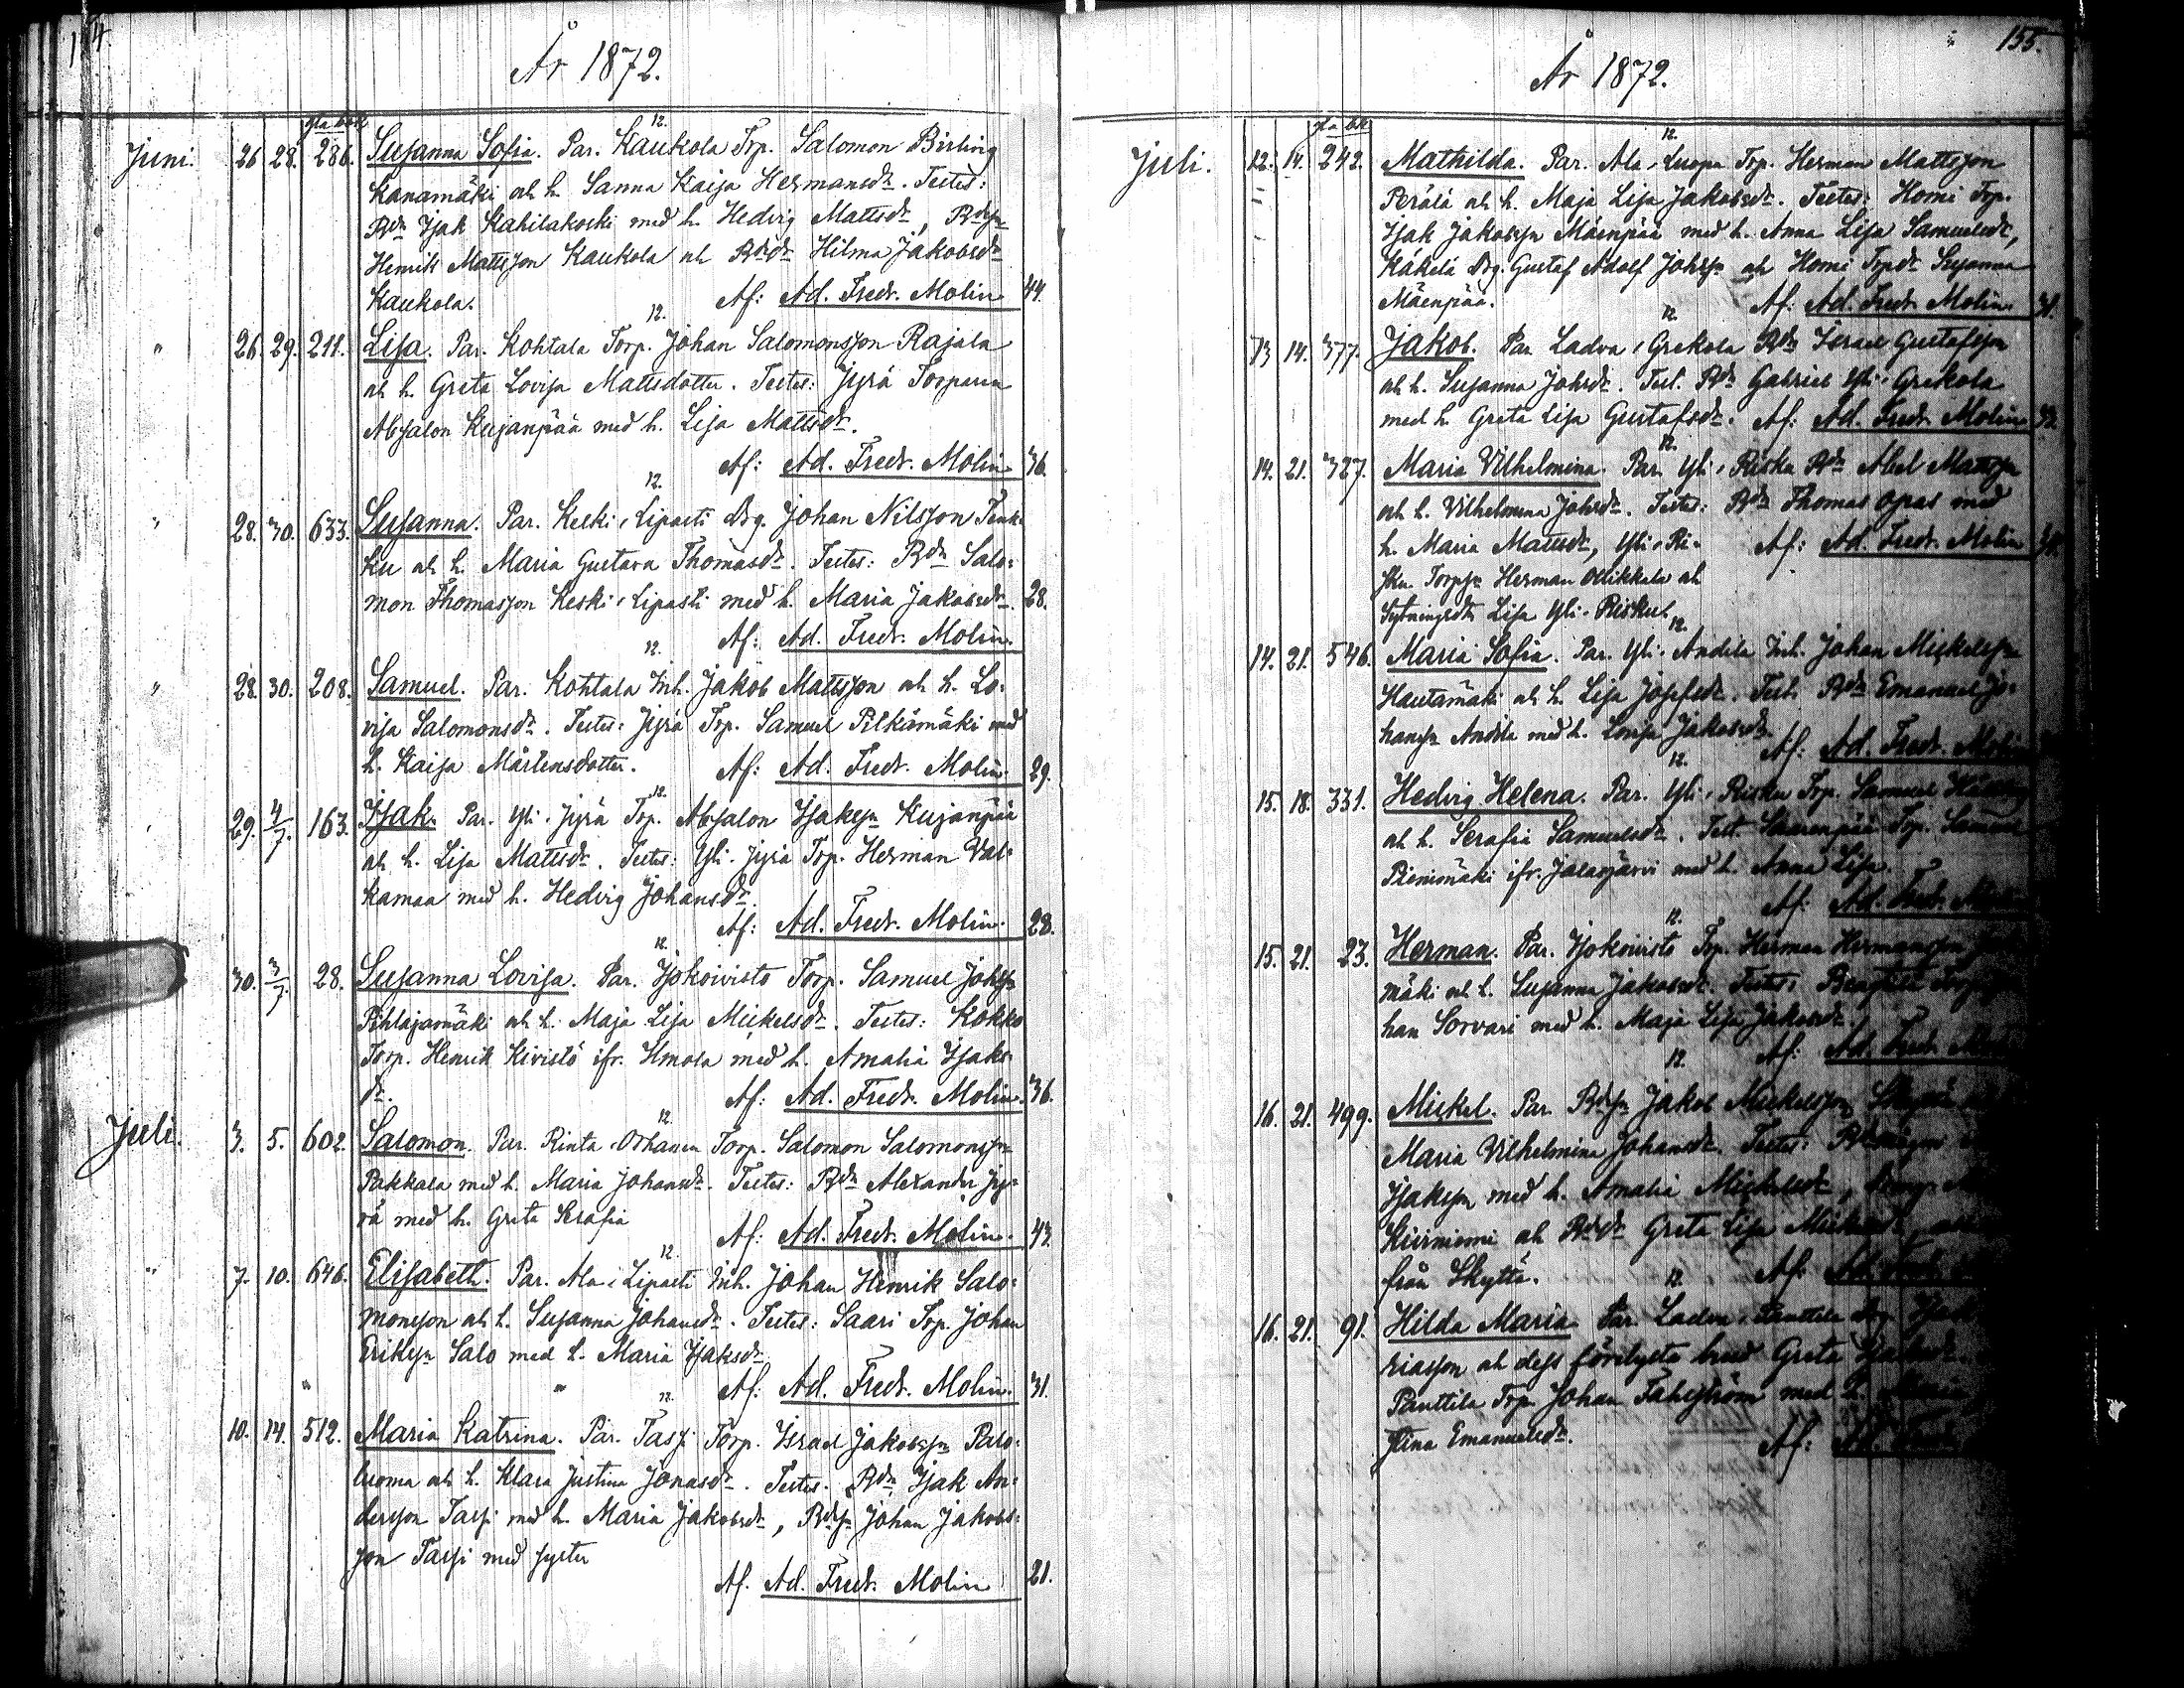 154.
År 1872.
gla bok
Juni. 26. 28. 286. Susanna Sofia. Par. Kaukola Trp. Salomon Birling
Kanamäki och h. Sanna Kaisa Hermansdr. Testes:
Bdn Isak Kahilakoski med h. Hedvig Mattsdr, Bdsn
Henrik Mattsson Kaukola och Bddr Hilma Jakobsdr
Kaukola. Af: Ad. Fredr. Molin 44.
12.
" 26. 29. 211. Lisa. Par. Kohtala Torp. Johan Salomonsson Rajala
och h. Greta Lovisa Mattsdotter. Testes: Jyrä Torparen
Absalon Kujanpää med h. Lisa Mattsdr.
Af: Ad. Fredr. Molin 36.
12.
" 28. 30. 633. Susanna. Par. Keski-Lipasti Drg. Johan Nilsson Tenk-
ku och h. Maria Gustava Thomasdr. Testes: Bdn Salo-
mon Thomasson Keski-Lipasti med h. Maria Jakobsdr. 28.
Af: Ad. Fredr. Molin.
12.
" 28. 30. 208. Samuel. Par. Kohtala Inh. Jakob Mattsson och h. Lo-
visa Salomonsdr. Testes: Jyrä Trp. Samuel Pilkämäki med
h. Kaisa Mårtensdotter. Af: Ad. Fredr. Molin. 29.
12.
29. 4/7. 163. Isak. Par. Yli-Jyrä Trp. Absalon Isaksn Kujanpää
och h. Lisa Mattsdr. Testes: Yli-Jyrä Trp. Herman Val-
kamaa med h. Hedvig Johansdr.
Af: Ad. Fredr. Molin. 28.
12.
30. 3/7. 28. Susanna Lovisa. Par. Isokoivisto Torp. Samuel Johssn
Pihlajamäki och h. Maja Lisa Mickelsdr. Testes: Kokko
Torp. Henrik Kivistö ifr. Ilmola med h. Amalia Isaks-
dr. Af: Ad. Fredr. Molin. 36.
12.
Juli. 3. 5. 602. Salomon. Par. Rinta-Orhanen Torp. Salomon Salomonssn
Pakkala med h. Maria Johansdr. Testes: Bdn Alexander Jy-
rä med h. Greta Serafia
Af: Ad. Fredr. Molin. 43.
12.
" 7. 10. 646. Elisabeth. Par. Ala-Lipasti Inh. Johan Henrik Salo-
monsson och h. Susanna Johansdr. Testes: Saari Trp. Johan
Eriksn Salo med h. Maria Isaksdr
Af: Ad. Fredr. Molin. 31.
12.
10. 14. 512. Maria Katrina. Par. Tassi Torp. Israel Jakobssn Palo-
luoma och h. Klara Justina Jonasdr. Testes. Bdn Isak An-
dersson Tassi med h. Maria Jakobsdr, Bdsn Johan Jakobs-
son Tassi med syster
Af. Ad. Fredr. Molin 21.
155.
År 1872.
gla bok
Juli. 12. 14. 242. Mathilda. Par. Ala-Luopa Trp. Herman Mattsson
Perälä och h. Maja Lisa Jakobsdr. Testes: Homi Trp.
Isak Jakobsn Mäenpää med h. Anna Lisa Samuelsdr,
Käkelä Drg. Gustaf Adolf Johssn och Homi Trpdr Susanna
Mäenpää. Af: Ad. Fredr. Molin.
12.
13. 14. 377. Jakob. Par Ladva-Grekola Bdn Israel Gustafsson
och h. Susanna Johsdr. Test. Bdn Gabriel Yli-Grekola
med h. Greta Lisa Gustafsdr. Af: Ad. Fredr. Molin
12.
14. 21. 327. Maria Vilhelmina. Par. Yli-Risku Bdn Abel Mattssn
och h. Vilhelmina Johsdr. Testes: Bdn Thomas Opas med
h. Maria Mattsdr, Yli-Ri- Af: Ad. Fredr. Molin
sku. Torpsn Herman Ollikkala och
Sytningsdr Lisa Yli-Risku.
12.
14. 21. 546. Maria Sofia. Par. Yli-Andila Inh. Johan Mickelssn
Hautamäki och h. Lisa Josefsdr. Test. Bdn Emanuel Jo-
hanssn Andila med h. Lovisa Jakobsdr.
Af: Ad. Fredr. Molin
12.
15. 18. 331. Hedvig Helena. Par. Yli-Risku Trp. Samuel
och h. Serafia Samuelsdr. Test. Saarenpää Trp. Samuel
Pienimäki ifr. Jalasjärvi med h. Anna Lisa
Af: Ad. Fredr.
12.
15. 21. 23. Herman. Par. Isokoivisto Trp. Herman Hermansson
mäki och h. Susanna Jakobsdr. Testes:
han Sorvari med h. Maja Lisa Jakobsdr
Af: Ad. Fredr.
12.
16. 21. 499. Mickel. Par. Bdsn Jakob Mickelsson
Maria Vilhelmina Johansdr. Testes:
Isaksn med h. Amalia Mickelsdr,
Kiviniemi och Bddr Greta Lisa
från Skyttä. Af: Ad.
12.
16. 21. 91. Hilda Maria. Par. Ladva-Panttila
riasson och dess förelysta brud Greta
Panttila Trp. Johan Fahlström med h.
Stina Emanuelsdr. Af: